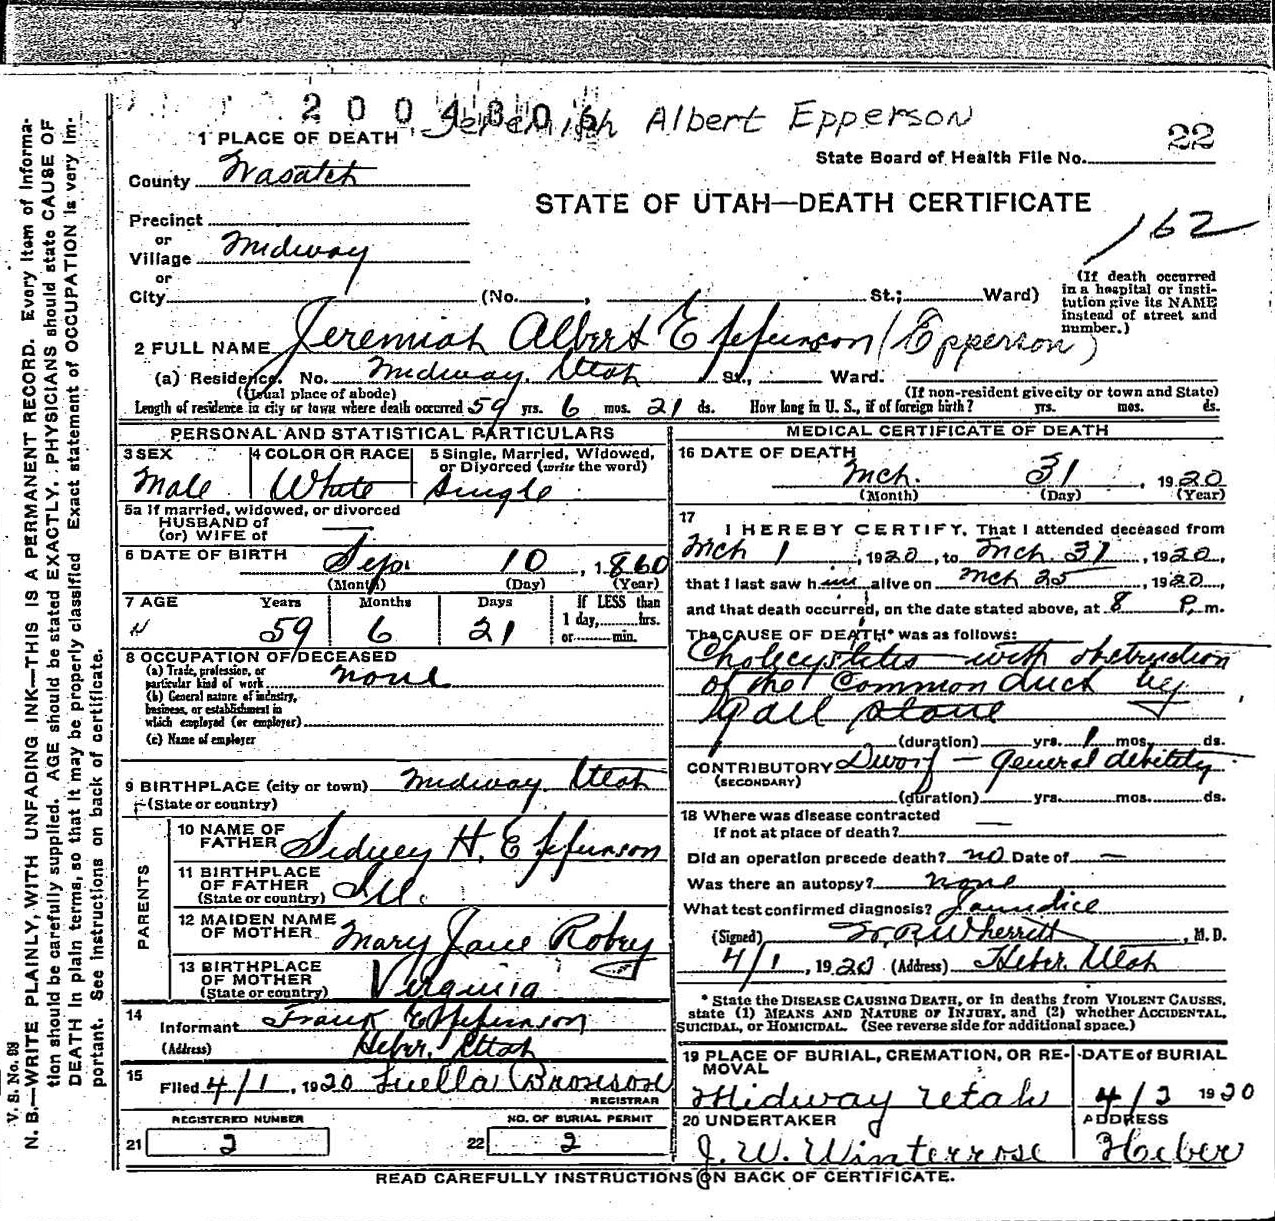 2004306 Jeremiah Albert Epperson
1 PLACE OF DEATH
22
State Board of Health File No.
County Wasatch
STATE OF UTAH—DEATH CERTIFICATE
Precinct
162
or
Village Midway
or
City (No. , St.; Ward)
(If death occurred in a hospital or institution give its NAME instead of street and number.)
2 FULL NAME Jeremiah Albert Epperson (Epperson)
(a) Residence. No. Midway, Utah St., Ward.
(Usual place of abode) (If non-resident give city or town and State)
Length of residence in city or town where death occurred 59 yrs. 6 mos. 21 ds. How long in U. S., if of foreign birth? yrs. mos. ds.
PERSONAL AND STATISTICAL PARTICULARS
3 SEX 4 COLOR OR RACE 5 Single, Married, Widowed, or Divorced (write the word)
Male White Single
5a If married, widowed, or divorced
HUSBAND of
(or) WIFE of —
6 DATE OF BIRTH Sep. 10, 1860
(Month) (Day) (Year)
7 AGE Years Months Days If LESS than
1 day, hrs.
or min.
59 6 21
8 OCCUPATION OF DECEASED
(a) Trade, profession, or
particular kind of work none
(b) General nature of industry,
business, or establishment in
which employed (or employer)
(c) Name of employer
9 BIRTHPLACE (city or town) Midway Utah
(State or country)
PARENTS
10 NAME OF FATHER Sidney H. Epperson
11 BIRTHPLACE OF FATHER Ill.
(State or country)
12 MAIDEN NAME OF MOTHER Mary Jane Robey
13 BIRTHPLACE OF MOTHER Virginia
(State or country)
14
Informant Frank Epperson
(Address) Heber, Utah
15
Filed 4/1, 1920 Luella Bronson
REGISTRAR
REGISTERED NUMBER NO. OF BURIAL PERMIT
21 2 22 2
MEDICAL CERTIFICATE OF DEATH
16 DATE OF DEATH
Mch. 31, 1920
(Month) (Day) (Year)
17
I HEREBY CERTIFY, That I attended deceased from
Mch 1, 1920, to Mch. 31, 1920,
that I last saw him alive on Mch 25, 1920,
and that death occurred, on the date stated above, at 8 P. m.
The CAUSE OF DEATH* was as follows:
Cholecystitis with obstruction
of the Common duct by
Gall stone
(duration) yrs. 1 mos. ds.
CONTRIBUTORY Dwarf — general debility
(SECONDARY)
(duration) yrs. mos. ds.
18 Where was disease contracted
If not at place of death? —
Did an operation precede death? no Date of —
Was there an autopsy? none
What test confirmed diagnosis? Jaundice
(Signed) W. R. Wherritt, M. D.
4/1, 1920 (Address) Heber, Utah
* State the DISEASE CAUSING DEATH, or in deaths from VIOLENT CAUSES,
state (1) MEANS AND NATURE OF INJURY, and (2) whether ACCIDENTAL,
SUICIDAL, or HOMICIDAL. (See reverse side for additional space.)
19 PLACE OF BURIAL, CREMATION, OR REMOVAL DATE of BURIAL
Midway Utah 4/2 1920
20 UNDERTAKER ADDRESS
J. W. Winterrose Heber
READ CAREFULLY INSTRUCTIONS ON BACK OF CERTIFICATE.
V. S. No. 98
N. B.—WRITE PLAINLY, WITH UNFADING INK—THIS IS A PERMANENT RECORD. Every item of informa-
tion should be carefully supplied. AGE should be stated EXACTLY. PHYSICIANS should state CAUSE OF
DEATH in plain terms, so that it may be properly classified. Exact statement of OCCUPATION is very im-
portant. See instructions on back of certificate.